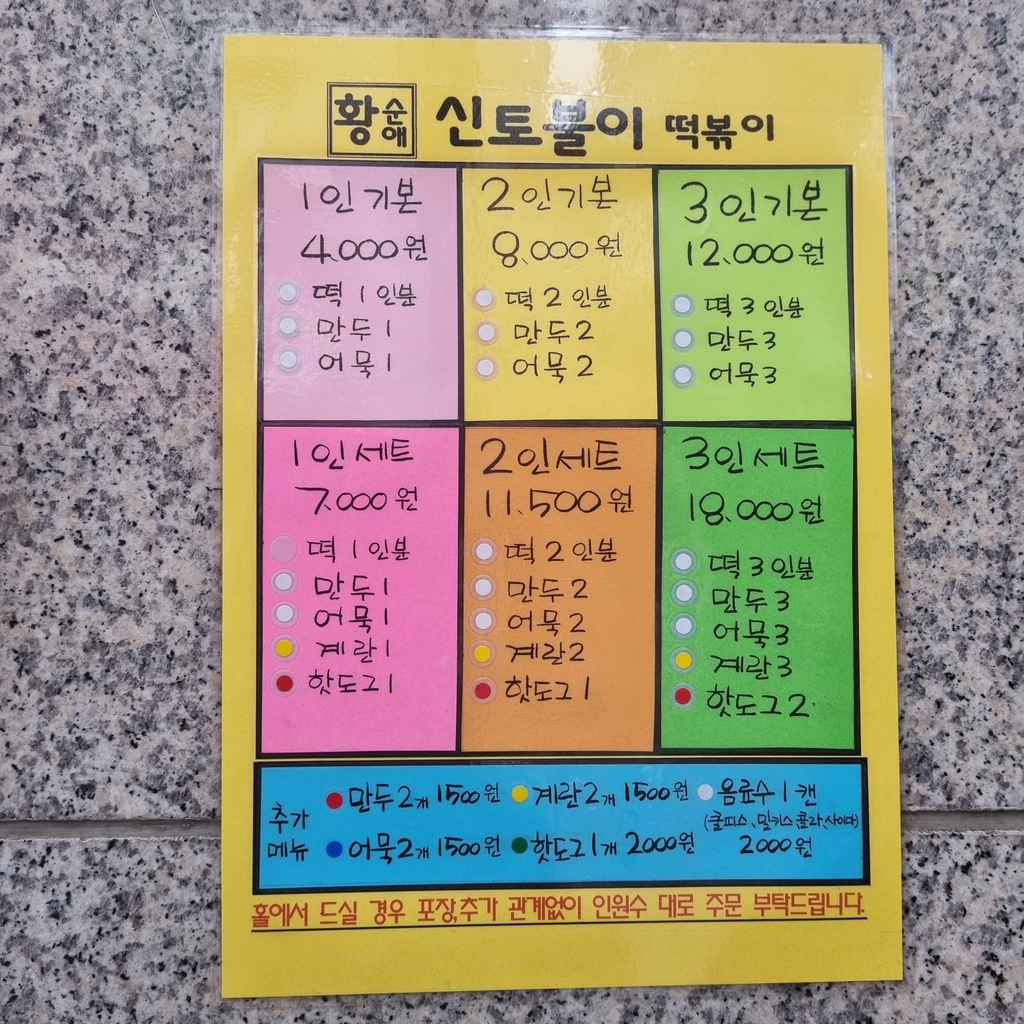 황순애 신토불이 떡볶이
1인 기본
4.000원
떡 1인분
만두 1
어묵 1
2인 기본
8.000원
떡 2인분
만두 2
어묵 2
3인 기본
12.000원
떡 3인분
만두 3
어묵 3
1인 세트
7.000원
떡 1인분
만두 1
어묵 1
계란 1
핫도그 1
2인 세트
11.500원
떡 2인분
만두 2
어묵 2
계란 2
핫도그 1
3인 세트
18.000원
떡 3인분
만두 3
어묵 3
계란 3
핫도그 2
추가 메뉴
만두 2개 1500원
계란 2개 1500원
음료수 1캔
(쿨피스, 밀키스 콜라, 사이다)
어묵 2개 1500원
핫도그 1개 2000원
2000원
홀에서 드실 경우 포장,추가 관계없이 인원수 대로 주문 부탁드립니다.